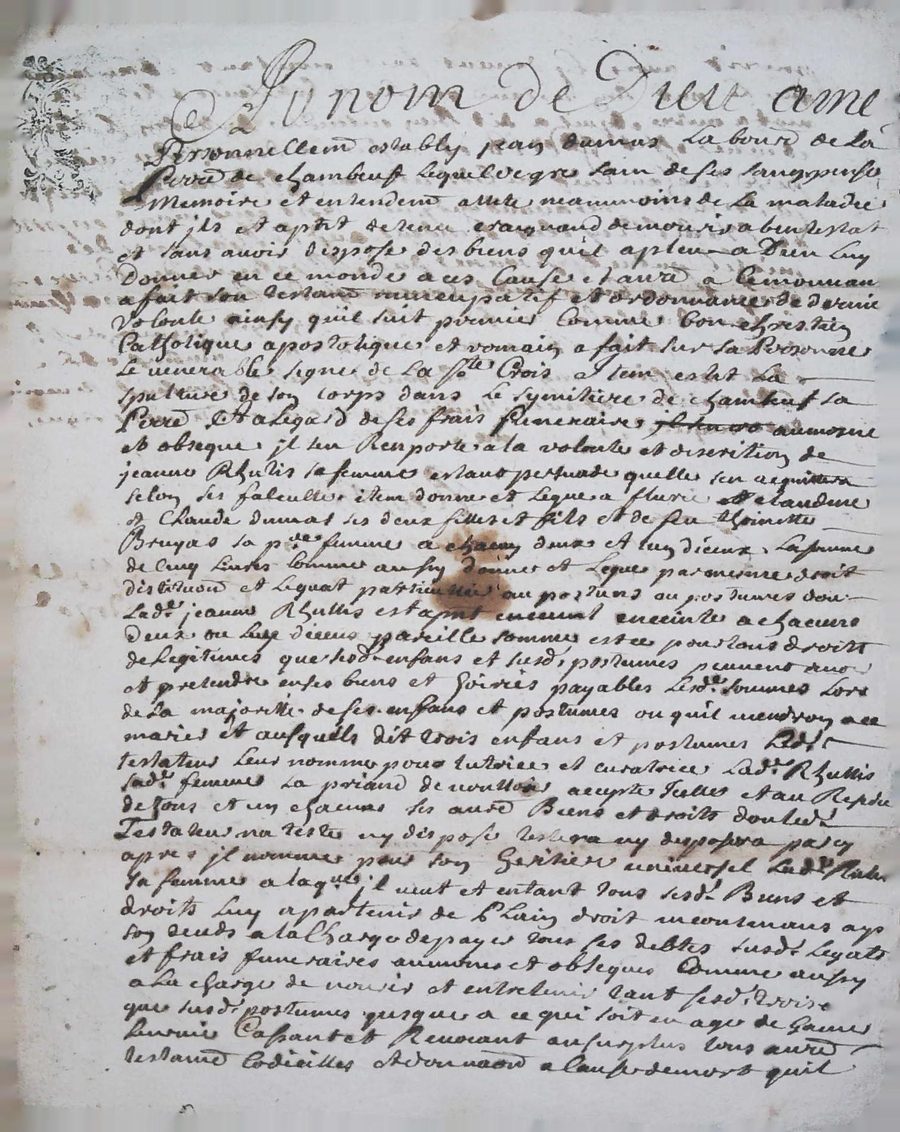 Au nom de Dieu ame
Personnellem estably jean dumas Labour de La
Pierre de chambeuf Lequel de gre sain de ses sans pensé
Memoire et entendem attete neammoins de La maladie
dont jls et aptnt detenu craignand de mourir abentestat
et sans avoir dispose des biens quil a pleu a Dieu Luy
Donner en ce monde a ces Cause et autre a Ce mouvan
a fait son testam nuncupatif et ordonnance de derniere
volonte ainsy quil suit premier Comme bon chrestien
Catholique apostolique et romain a fait sur sa Personne
Le venerable signe de La ste Crois jtem eslit La
spulture de son corps dans Le symitiere de chambeuf sa
Pierre Et a Legard de ses frais funeraires aumosne
et obseque jl sen Remporte a la volonte et discrition de
jeanne Rhullis sa femme estant persuade quelle sen acquittera
selon ses faculte jtem donne et Legue a fleurie et claudine
et Claude dumas ses deux filles et fils et de feu thoinette
Bruyas sa pre femme a chacun deux et un dieux La somme
de Cinq Livres Comme aussy donne et Legue par mesme droit
distitution et Legat particullier au postume ou postumes dont
Ladte jeanne Rhullis est aptnt enceinte a chacuns
deux ou Luy dieux pareille somme et ce pour tous droits
de Legitimes que sesd enfans et susd postumes peuvent avoir
et pretendre en ses biens et hoiries payables Lesd sommes Lors
de La majorite de ses enfans et postumes ou quil viendron a ce
marier et ausquels dit trois enfans et postumes Ledt
testateur Leur nomme pour tutrice et curatrice Ladte Rhullis
sadte femme La priand de vouloir accepte Icelle et au Residu
de tous et un chacuns ses autre Biens et droits dont Led
Testateur na teste ny dispose testera ny disposera pas cy
apres jl nomme pour son heritier universel Ladte Rhullis
sa femme a laqlle jl veut et entant tous sesd Biens et
droits Luy apartenir de Plain droit incontinans aps
son deceds a la Charge de payer tous ses debtes susd Legats
et frais funeraires aumones et obseques Comme aussy
a La charge de nourir et entretenir tant sesd trois
que susd postumes jusque a ce qui soit en age de gaine
Leur vie Cassant et Revocant au surplus tous autre
testam Codicilles et donnaon a Cause de mort quil